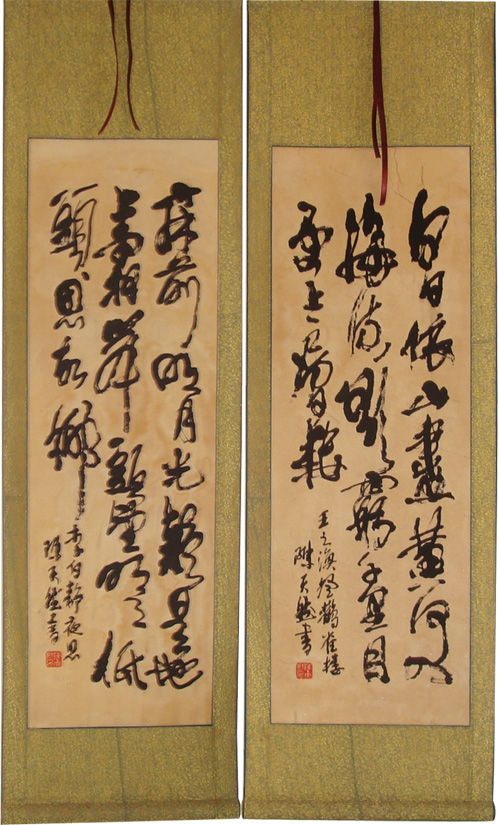 白日依山盡黃河入
海流欲窮千里目
更上一層樓
王之渙登鸛雀樓
陳天然書
床前明月光疑是地
上霜舉頭望明月低
頭思故鄉
李白靜夜思
陳天然書